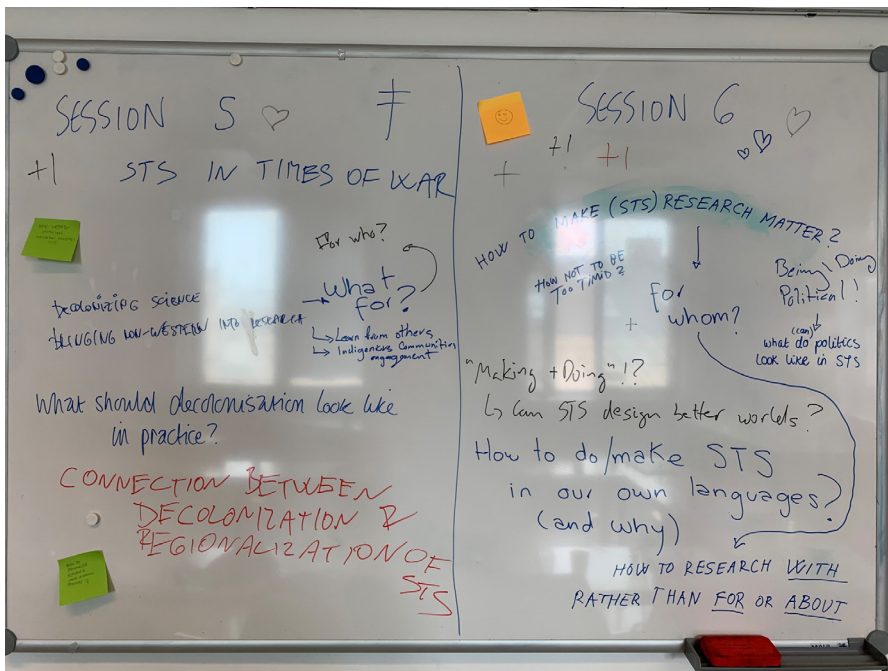 SESSION 5
+1 STS IN TIMES OF WAR
NON-WESTERN
For who?
What
for?
DECOLONIZING SCIENCE
BRINGING NON-WESTERN INTO RESEARCH
Learn from others
Indigenous Communities
engagement
What should decolonisation look like
in practice?
CONNECTION BETWEEN
DECOLONIZATION &
REGIONALIZATION OF
STS
SESSION 6
+ +1 +1
HOW TO MAKE (STS) RESEARCH MATTER?
HOW NOT TO BE
TOO TIMID?
for
whom?
+
Being \ Doing
Political!
(can)
what do politics
look like in STS
"Making + Doing"!?
Can STS design better worlds?
How to do/make STS
in our own languages?
(and why)
HOW TO RESEARCH WITH
RATHER THAN FOR OR ABOUT